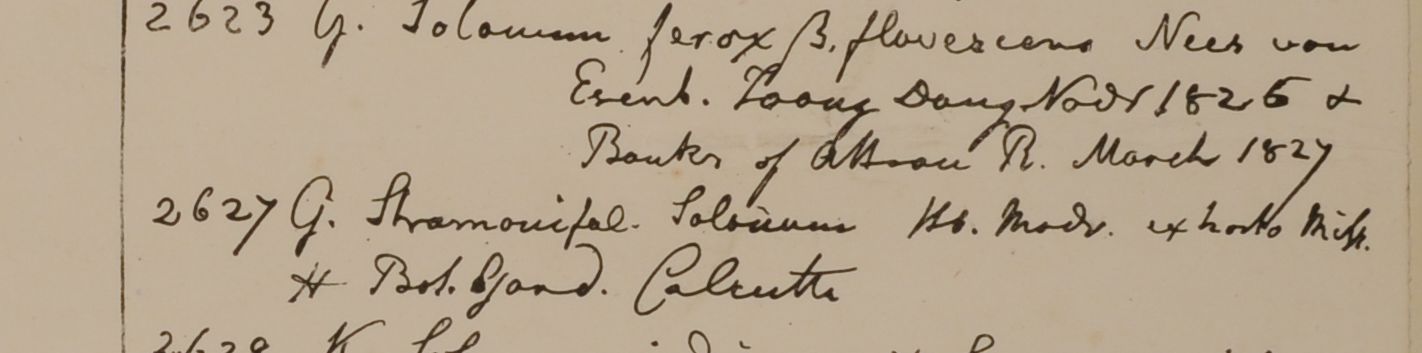 2623 G. Solanum ferox β. flavescens Nees von
Esenb. Toong Dong Novr 1826 &
Banks of Attran R. March 1827
2627 G. Stramonifol. Solanum Hb. Madr. ex horto Miss.
H Bot. Gard. Calcutta
2628 K